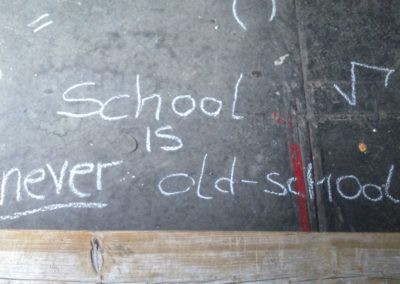 = ()
School √
is
never old-school